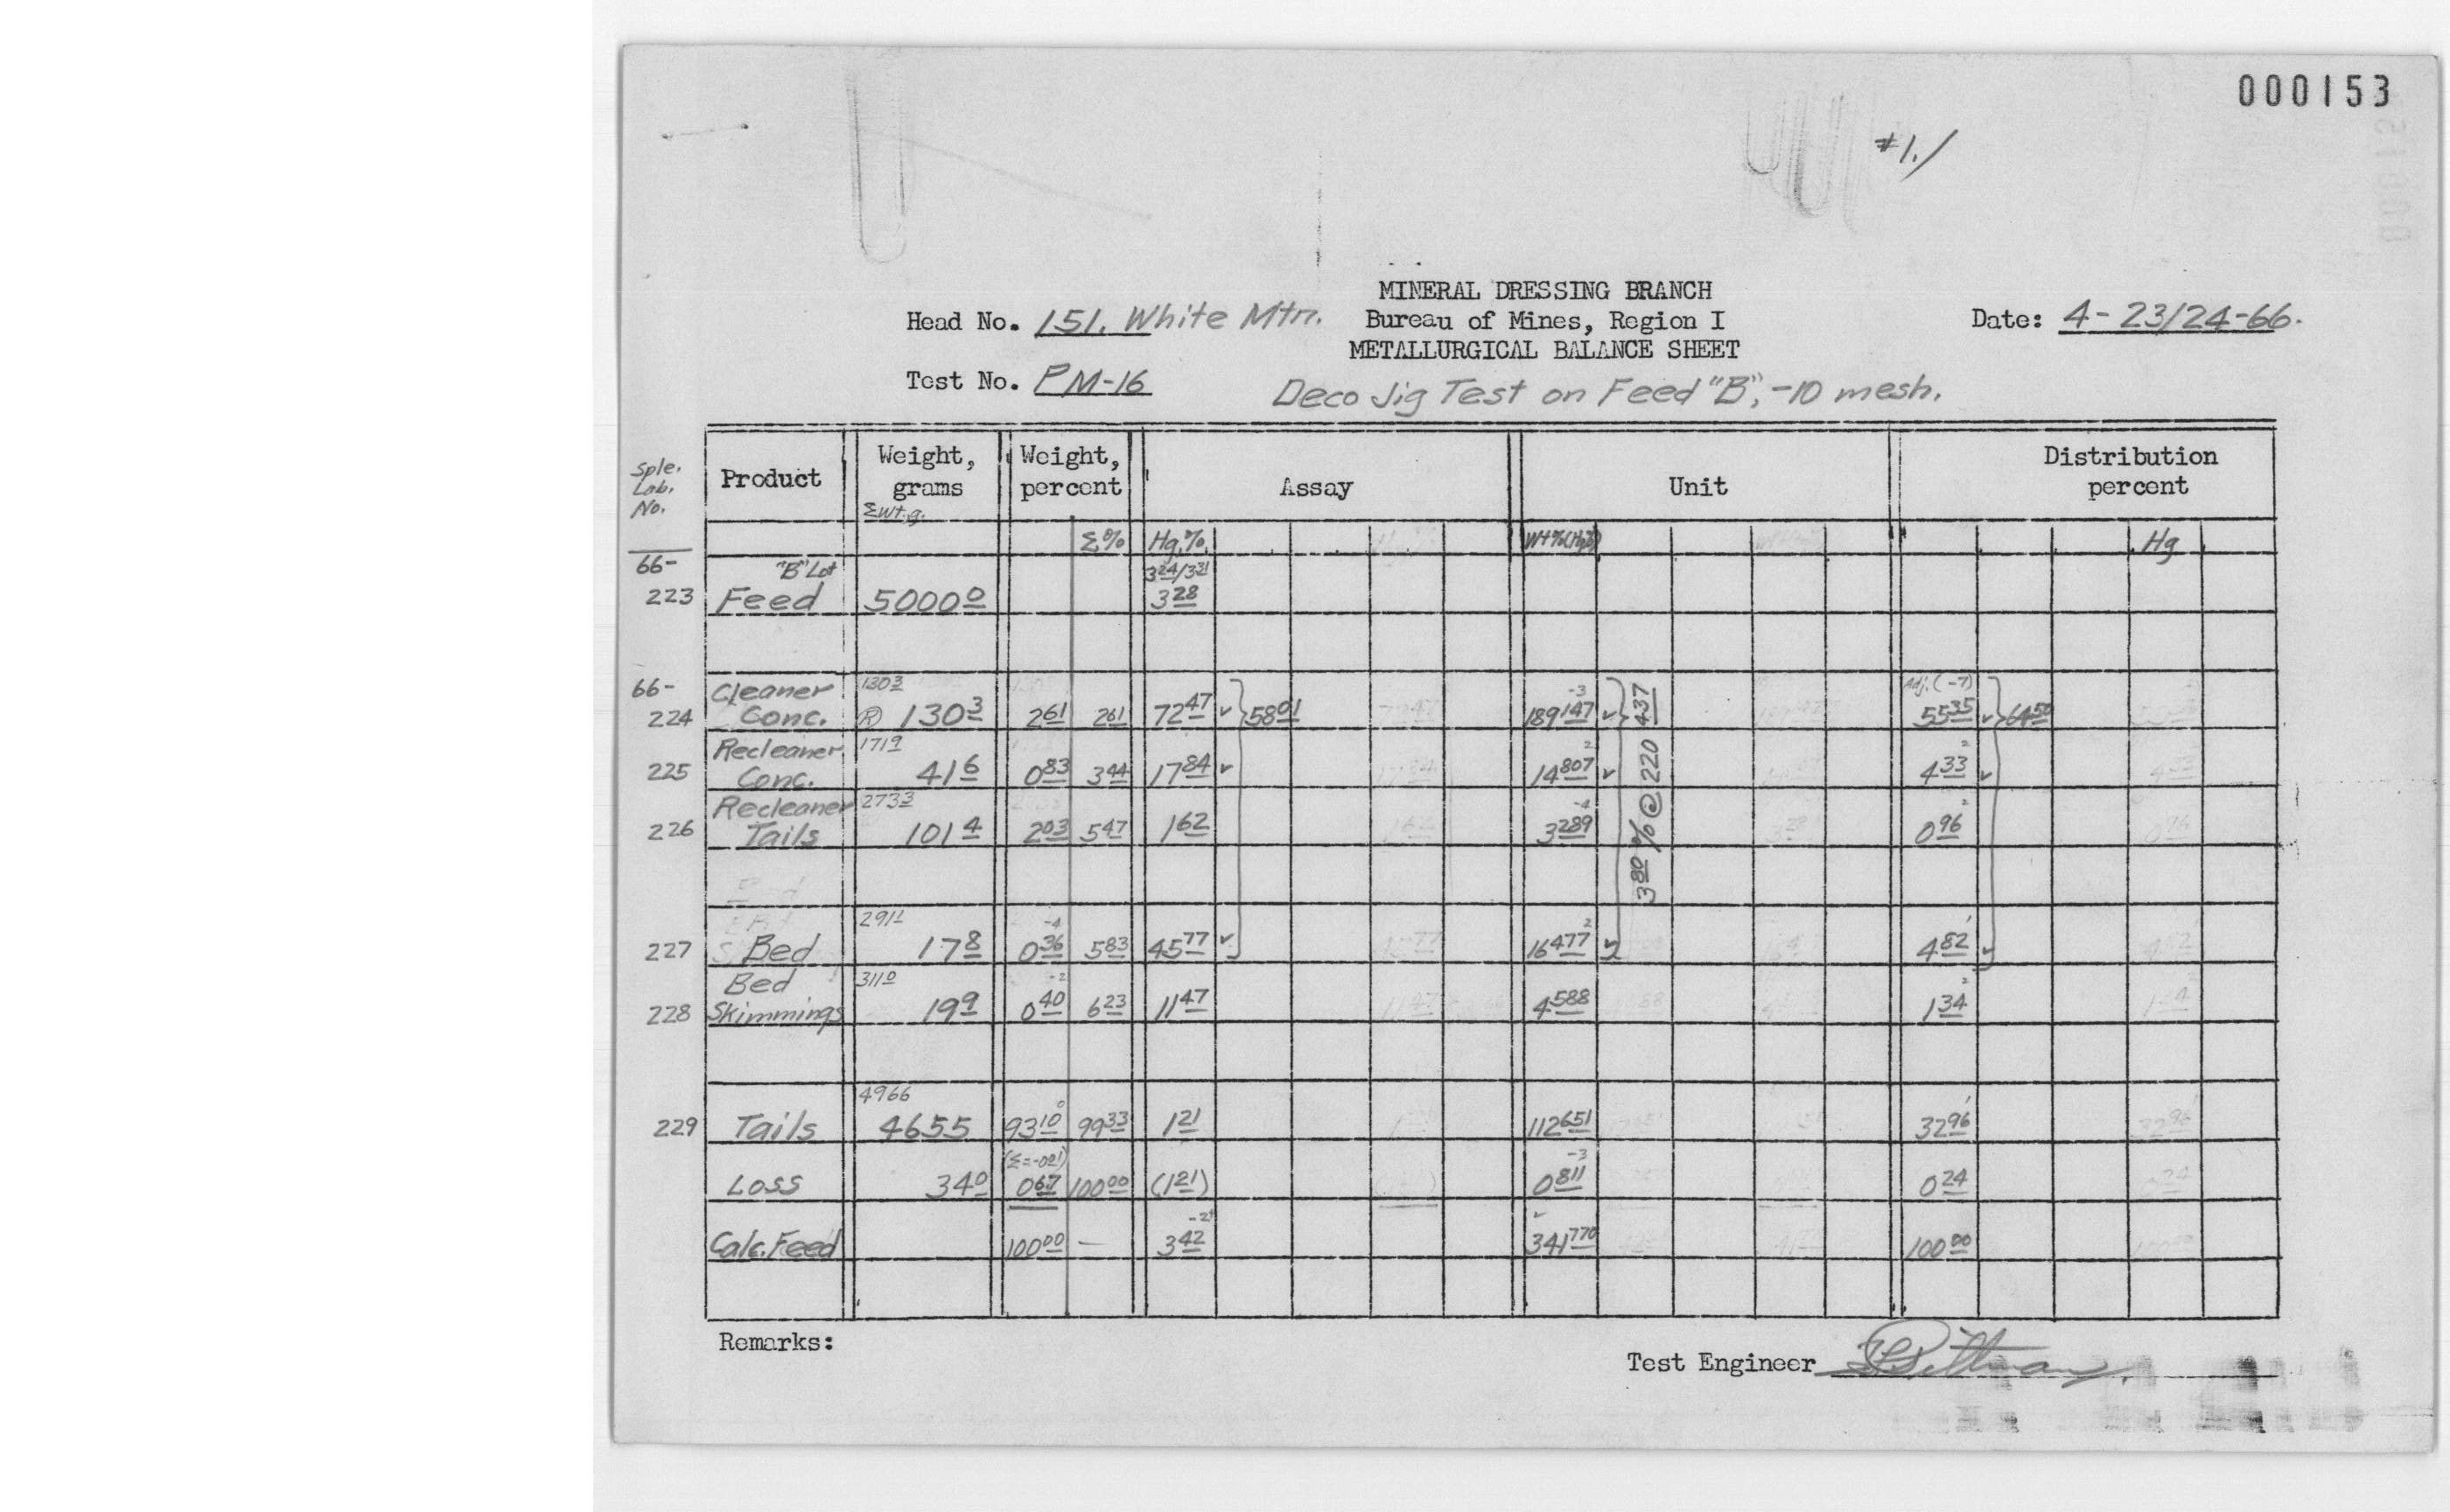 000153
#1./
MINERAL DRESSING BRANCH
Head No. 151. White Mtn. Bureau of Mines, Region I Date: 4-23/24-66.
METALLURGICAL BALANCE SHEET
Test No. PM-16 Deco Jig Test on Feed "B", -10 mesh.
Sple. Lab. No. Product Weight, grams Σwt.g. Weight, percent Assay Unit Distribution percent
Σ% Hg,% Hg
66- "B" Lot 3 24/3 31
223 Feed 5000 0 3 28
66- Cleaner 130 3 -3 Adj. (-7)
224 Conc. Ⓡ 130 3 2 61 2 61 72 47 ✓ 58 01 189 147 ✓ 55 35 ✓ 64 50
3 80 % @ 220 437
Recleaner 171 9 2 2
225 Conc. 41 6 0 83 3 44 17 84 ✓ 14 807 ✓ 4 33 ✓
Recleaner 273 3 -4 2
226 Tails 101 4 2 03 5 47 1 62 3 289 0 96
291 1 -4 2 1
227 Bed 17 8 0 36 5 83 45 77 ✓ 16 477 ✓ 4 82 ✓
Bed 311 0 -2 2
228 Skimmings 19 9 0 40 6 23 11 47 4 588 1 34
4966 0 1
229 Tails 4655 93 10 99 33 1 21 112 651 32 96
(Σ=-0 01) -3
Loss 34 0 0 67 100 00 (1 21) 0 811 0 24
-2+ ✓
Calc. Feed 100 00 — 3 42 341 770 100 00
Remarks:
Test Engineer